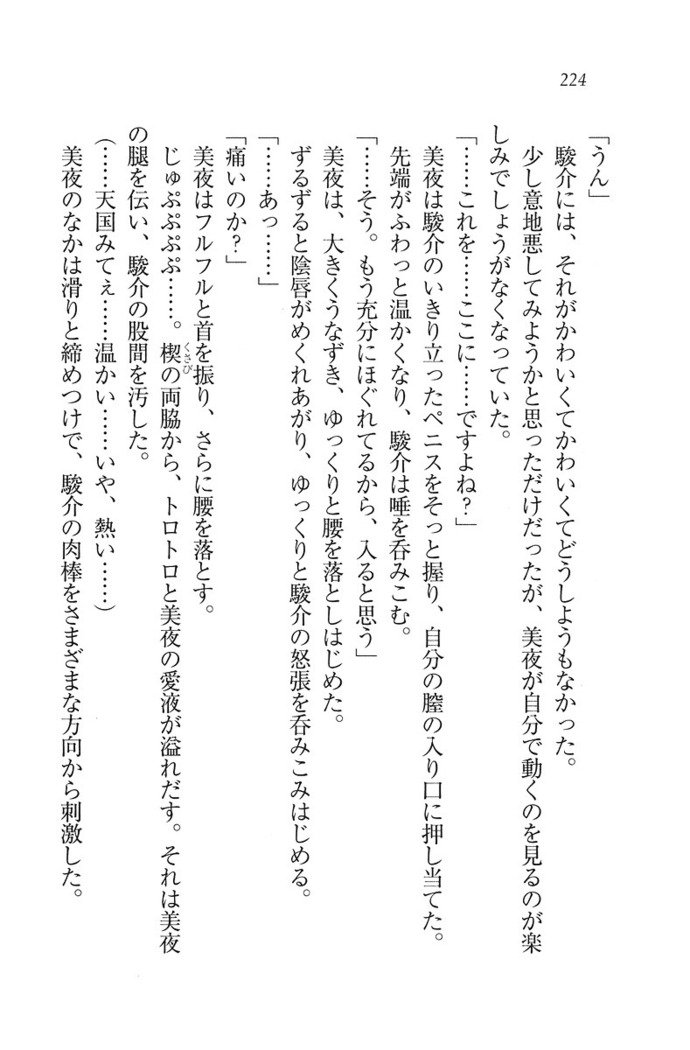 224
「うん」
駿介には、それがかわいくてかわいくてどうしようもなかった。
少し意地悪してみようかと思っただけだったが、美夜が自分で動くのを見るのが楽
しみでしょうがなくなっていた。
「……これを……ここに……ですよね？」
美夜は駿介のいきり立ったペニスをそっと握り、自分の膣の入り口に押し当てた。
先端がふわっと温かくなり、駿介は唾を呑みこむ。
「……そう。もう充分にほぐれてるから、入ると思う」
美夜は、大きくうなずき、ゆっくりと腰を落としはじめた。
ずるずると陰唇がめくれあがり、ゆっくりと駿介の怒張を呑みこみはじめる。
「……あっ……」
「痛いのか？」
美夜はフルフルと首を振り、さらに腰を落とす。
じゅぷぷぷぷ……。楔くさびの両脇から、トロトロと美夜の愛液が溢れだす。それは美夜
の腿を伝い、駿介の股間を汚した。
（……天国みてぇ……温かい……いや、熱い……）
美夜のなかは滑りと締めつけで、駿介の肉棒をさまざまな方向から刺激した。